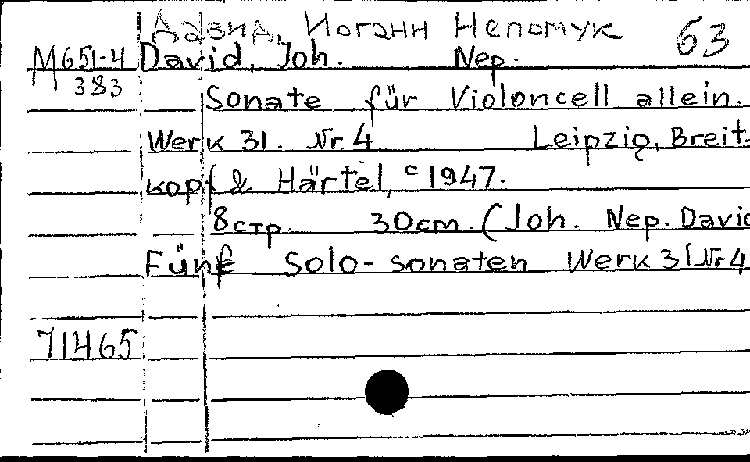 Давид, Иоганн Непомук 63
М651-4 David, Joh. Nep.
383
Sonate für Violoncell allein.
Werk 31. Nr 4 Leipzig, Breit-
kopf & Härtel, c 1947.
8 стр. 30 cm. (Joh. Nep. David
Fünf Solo-sonaten Werk 31 Nr 4
71465